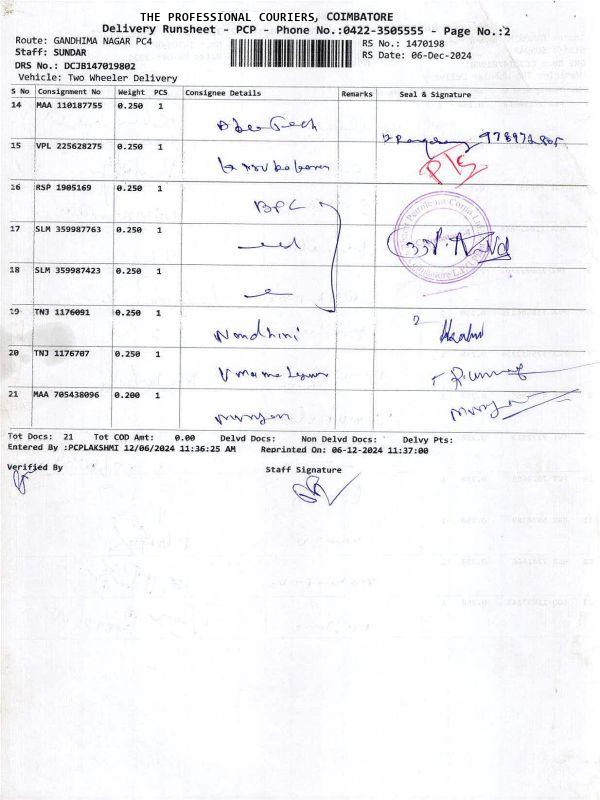 THE PROFESSIONAL COURIERS, COIMBATORE
Delivery Runsheet - PCP - Phone No.:0422-3505555 - Page No.:2
Route: GANDHIMA NAGAR PC4
RS No.: 1470198
Staff: SUNDAR
RS Date: 06-Dec-2024
DRS No.: DCJB147019802
Vehicle: Two Wheeler Delivery
S No Consignment No Weight PCS Consignee Details Remarks Seal & Signature
14 MAA 110187755 0.250 1
15 VPL 225628275 0.250 1
16 RSP 1905169 0.250 1 BPC
17 SLM 359987763 0.250 1
18 SLM 359987423 0.250 1
19 TNJ 1176091 0.250 1 Nandhini
20 TNJ 1176707 0.250 1
21 MAA 705438096 0.200 1
Tot Docs: 21 Tot COD Amt: 0.00 Delvd Docs: Non Delvd Docs: Delvy Pts:
Entered By :PCPLAKSHMI 12/06/2024 11:36:25 AM Reprinted On: 06-12-2024 11:37:00
Verified By Staff Signature